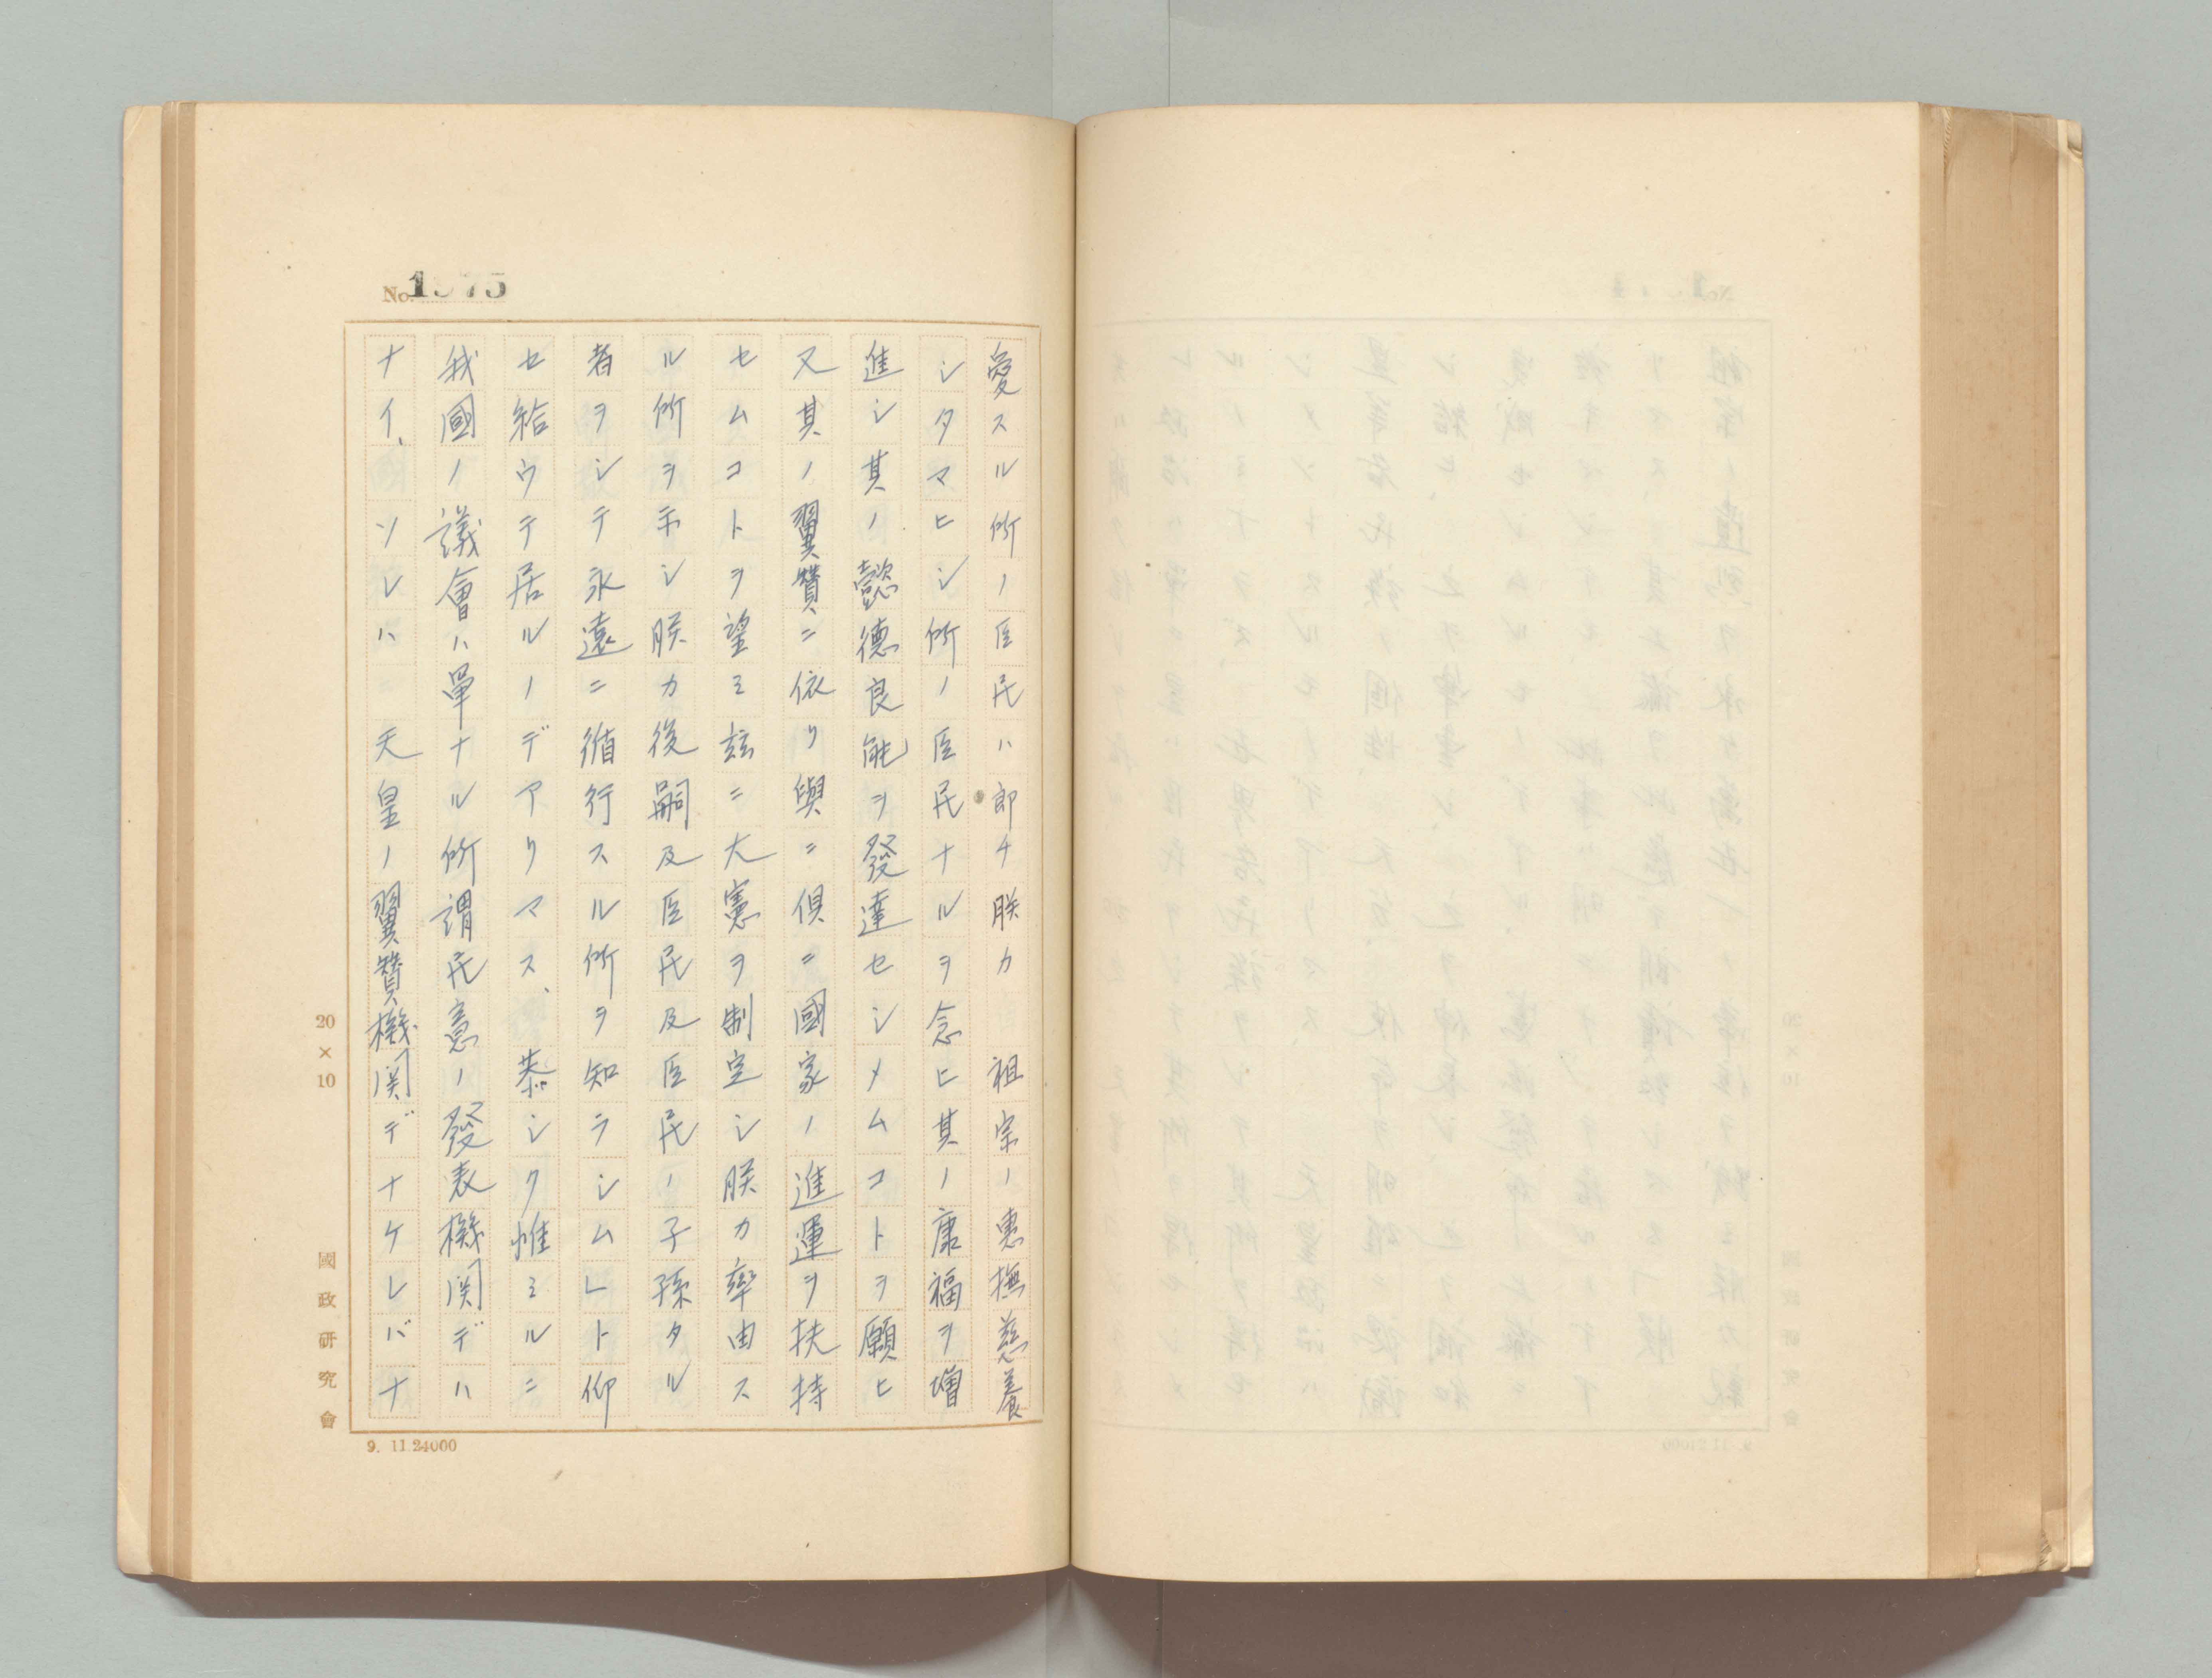 No. 1975
愛スル所ノ臣民ハ郎チ朕カ　祖宗ノ惠撫慈養
シタマヒシ所ノ臣民ナルヲ念ヒ其ノ康福ヲ増
進シ其ノ懿德良能ヲ發達セシメムコトヲ願ヒ
又其ノ翼賛ニ依リ與ニ俱ニ國家ノ進運ヲ扶持
セムコトヲ望ミ茲ニ大憲ヲ制定シ朕カ率由ス
ル所ヲ示シ朕カ後嗣及臣民及臣民ノ子孫タル
者ヲシテ永遠ニ循行スル所ヲ知ラシムレト仰
セ給ウテ居ルノデアリマス、恭シク惟ミルニ
我國ノ議會ハ單ナル所謂民意ノ發表機関デハ
ナイ、ソレハ　天皇ノ翼賛機関デナケレバナ
20×10
國政研究會
9. 11.24000